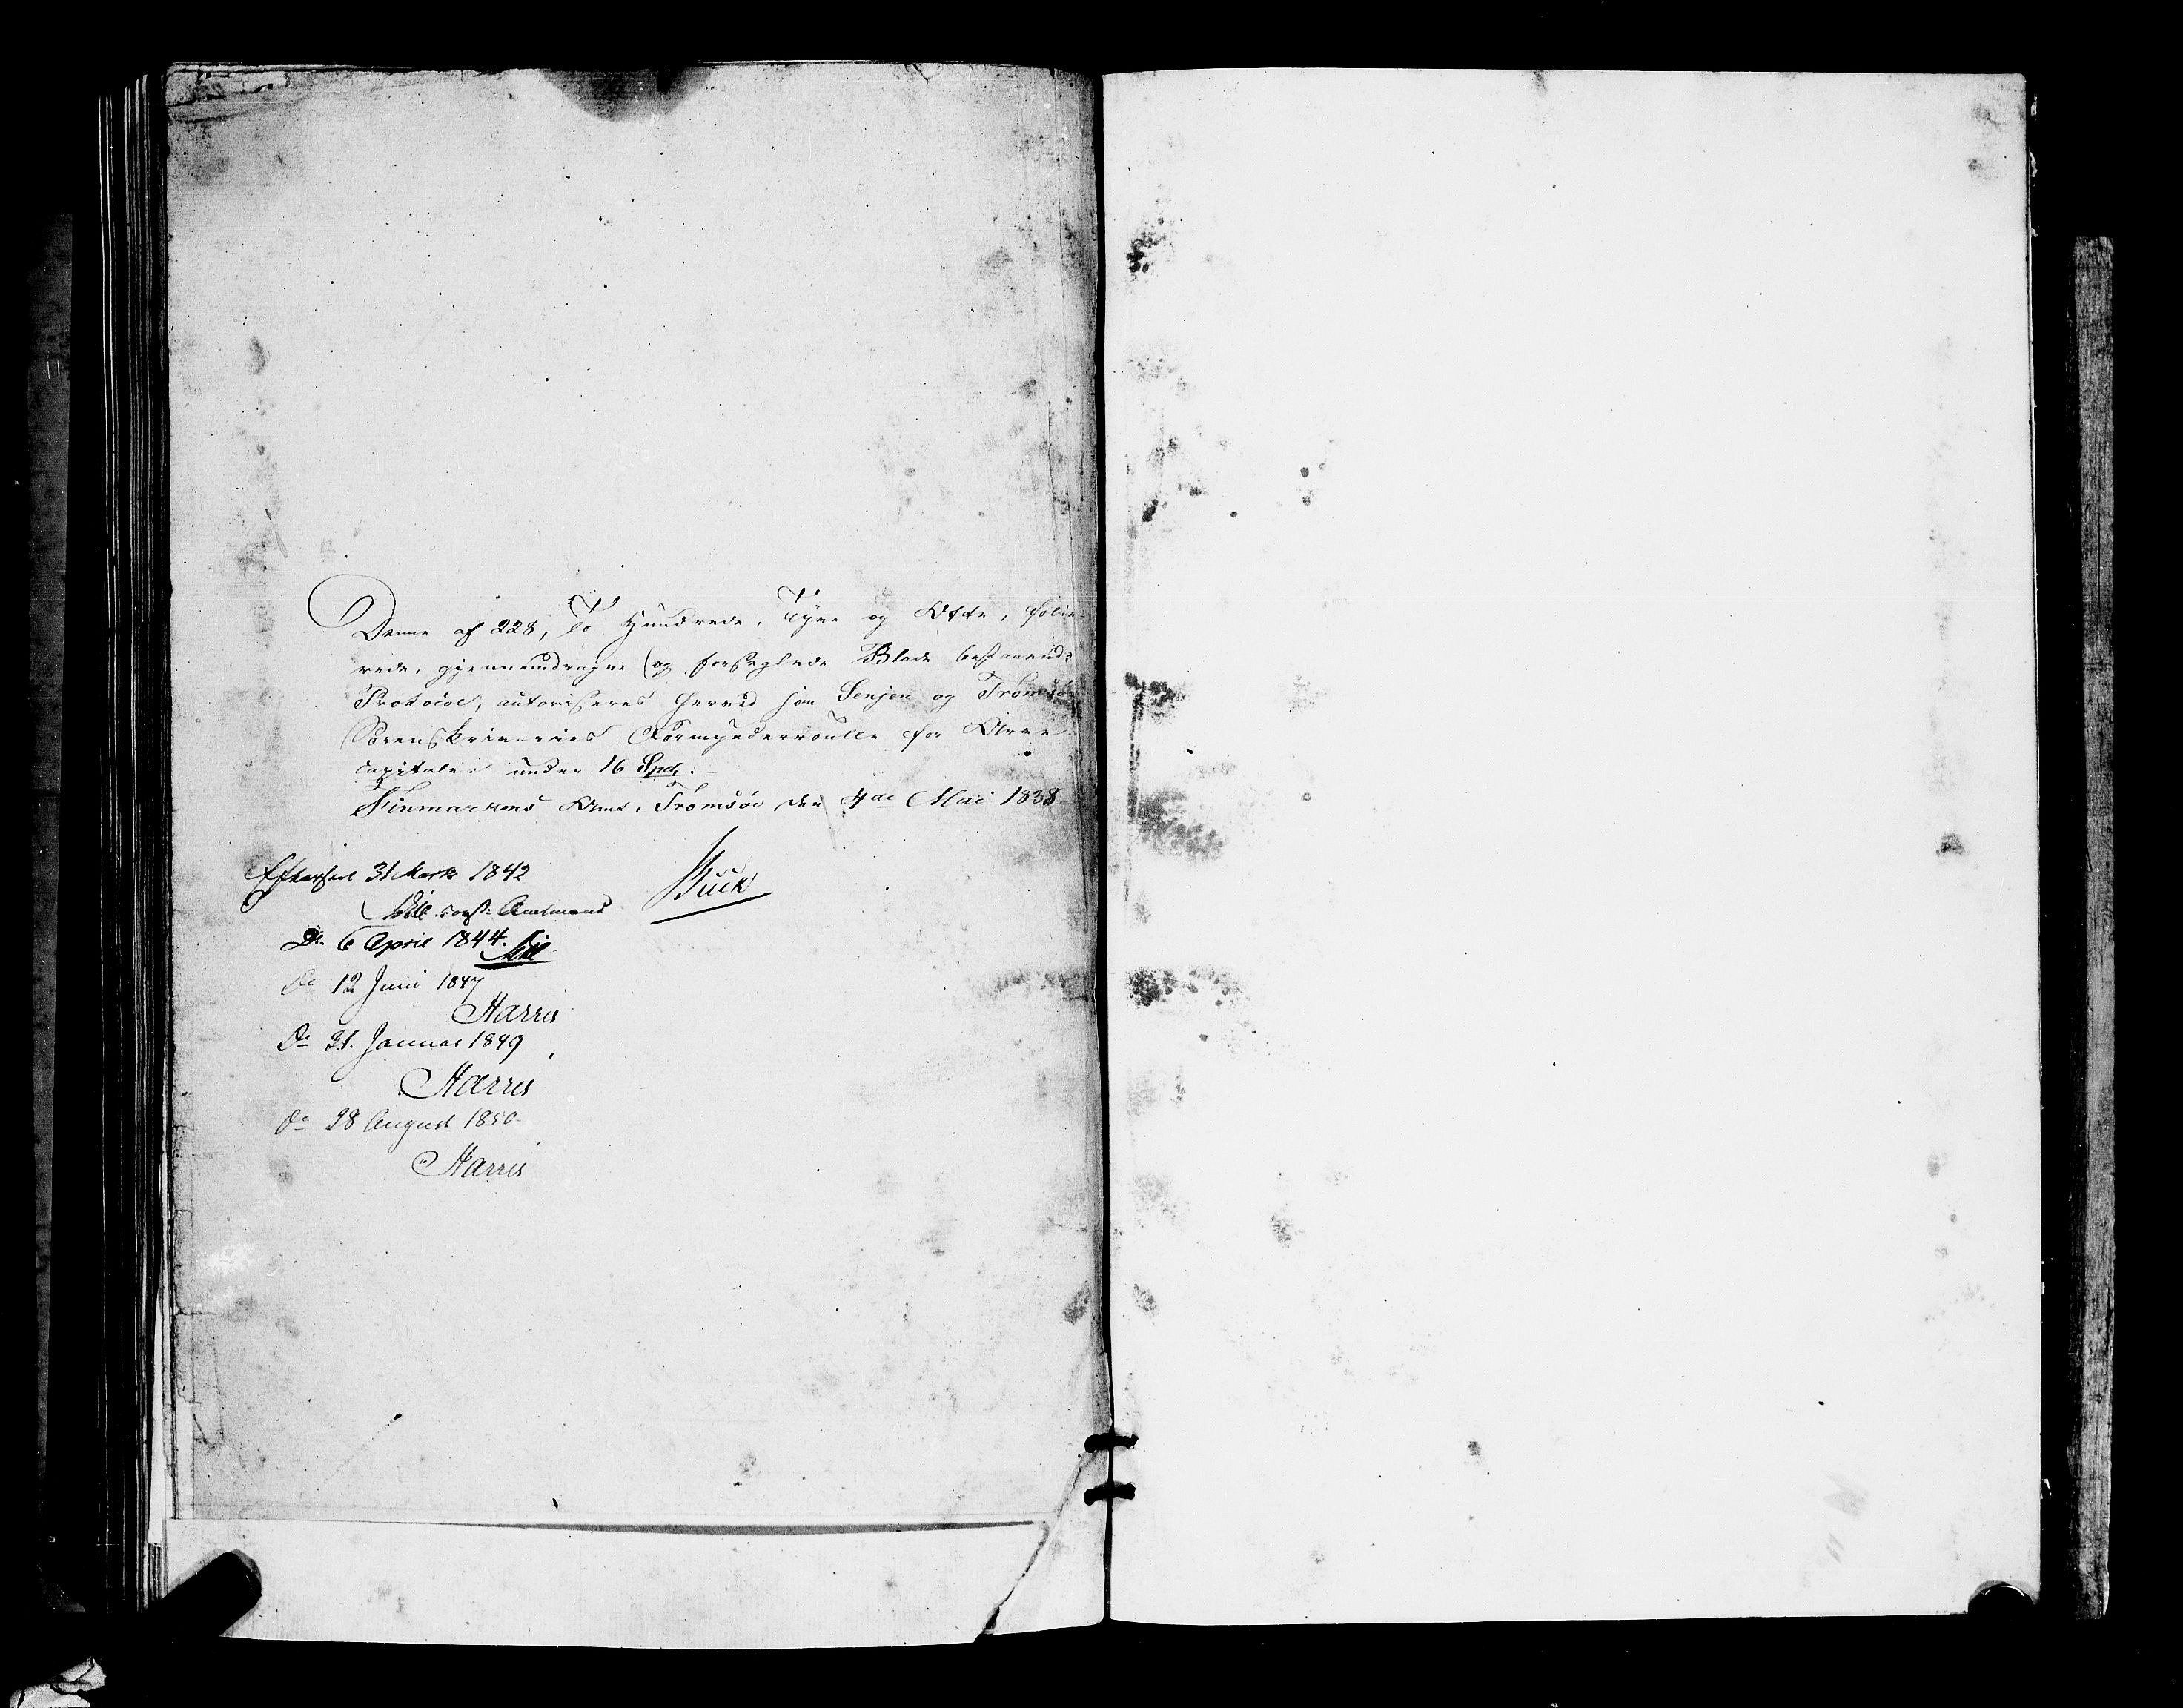 Denne af 228, To Hundrede, Tyve og Otte, folie-
rede, gjennemdragne og forseglede Blade bestaaende
Protocol, autoriseres herved som Senjen og Tromsø
Sorenskriveries Formynderroulle for Arve
capitaler under 16 Spd.
Finmarkens Amt, Tromsøe den 4de Mai 1838
Buck
Efterseet 31 Marts 1842
const. Amtmand
Do 6 April 1844.
Do 12 Juni 1847
Harris
Do 31. Januar 1849
Harris
Do 28 August 1850
Harris